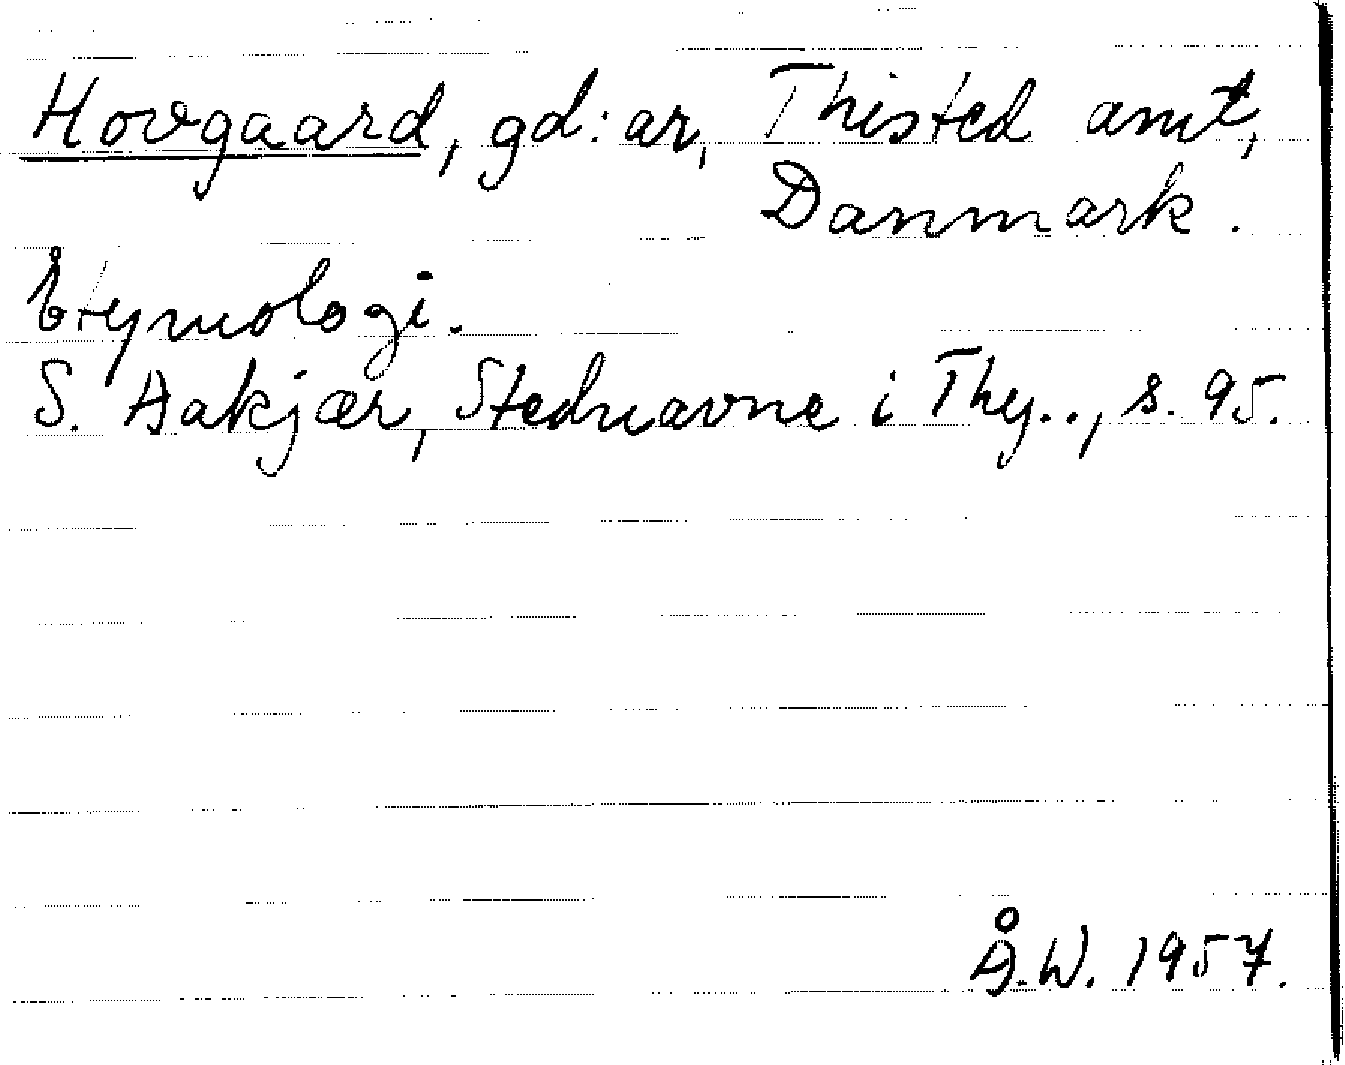 Hovgaard, gd:ar, Thisted amt,
Danmark.
Etymologi.
S. Aakjær, Stednavne i Thy.., s. 95.
Å.W. 1957.